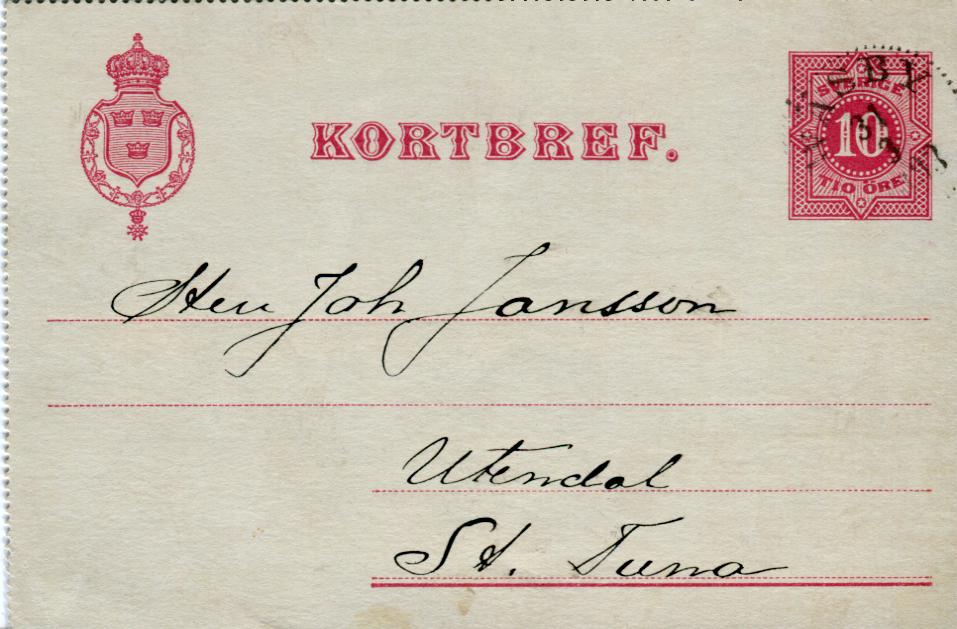 KORTBREF.
SVERIGE
10
TIO ÖRE
Herr Joh Jansson
Utendal
St. Tuna